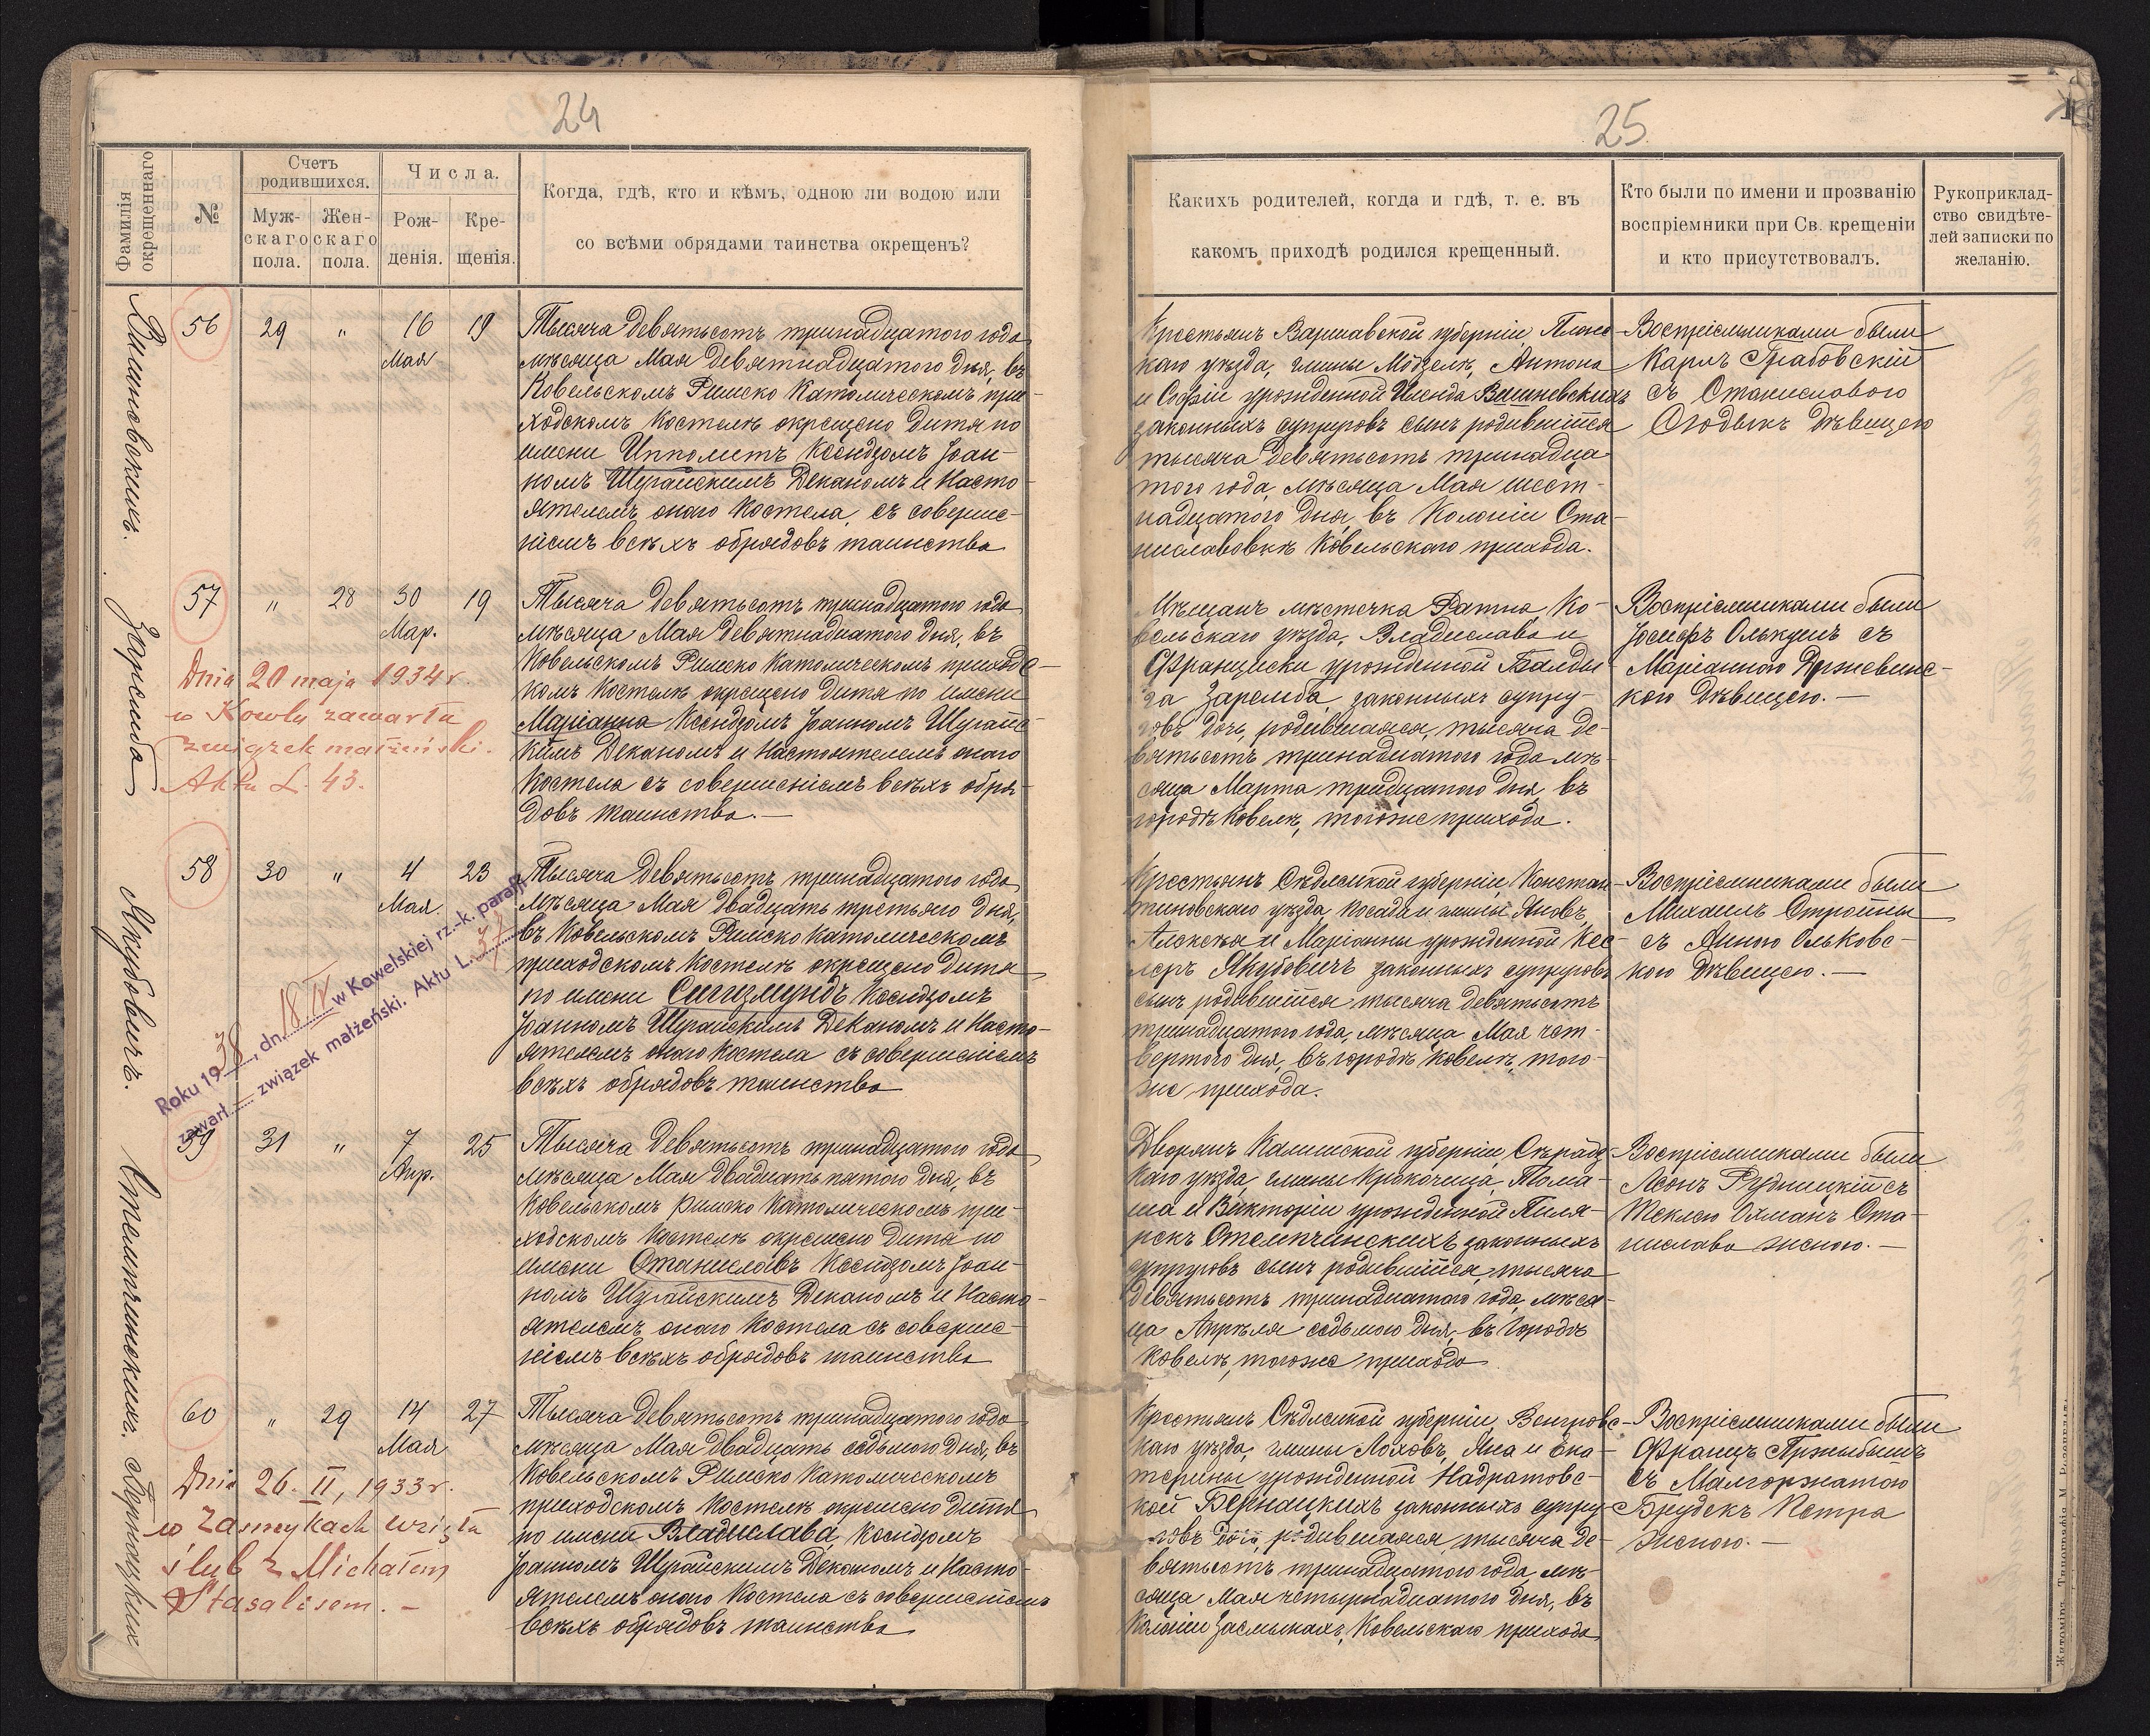 24
Фамилія окрещеннаго
№
Счетъ родившихся.
Мужскаго пола.
Женскаго пола.
Числа.
Рожденія.
Крещенія.
Когда, гдѣ, кто и кѣмъ, одною ли водою или
со всѣми обрядами таинства окрещенъ?
56
29
"
16
Мая
19
Тысяча девятьсотъ тринадцатого года
мѣсяца Мая девятнадцатого дня, въ
Ковельскомъ Римско Католическомъ при-
ходскомъ Костелѣ окрещено дитя по
имени Ипполитъ Ксендзомъ Іоан-
номъ Шурайскимъ Деканомъ и Насто-
ятелемъ онаго Костела, съ соверше-
ніемъ всѣхъ обрядовъ таинства
Заремба
57
"
28
30
Мар.
19
Тысяча девятьсотъ тринадцатого года
мѣсяца Мая девятнадцатого дня, въ
Ковельскомъ Римско Католическомъ приходс-
комъ Костелѣ окрещено дитя по имени
Маріанна Ксендзомъ Іоанномъ Шурайс-
кимъ Деканомъ и Настоятелемъ онаго
Костела съ совершеніемъ всѣхъ обря-
довъ таинства. —
Dnia 20 maja 1934 r.
w Kowlu zawarła
związek małżeński.
Aktu L. 43.
Якубовичъ.
58
30
"
4
Мая
23
Тысяча девятьсотъ тринадцатого года
мѣсяца Мая двадцать третьяго дня,
въ Ковельскомъ Римско Католическомъ
приходскомъ Костелѣ окрещено дитя
по имени Сигизмундъ Ксендзомъ
Іоанномъ Шурайскимъ Деканомъ и Насто-
ятелемъ онаго Костела съ совершеніемъ
всѣхъ обрядовъ таинства
Roku 1938, dn. 18 IV w Kowelskiej rz.-k. parafji
zawarł związek małżeński. Aktu L. 37
Стемпчинскихъ.
59
31
"
7
Апр.
25
Тысяча девятьсотъ тринадцатого года
мѣсяца Мая двадцать пятого дня, въ
Ковельскомъ Римско Католическомъ при-
ходскомъ Костелѣ окрещено дитя по
имени Станиславъ Ксендзомъ Іоан-
номъ Шурайскимъ Деканомъ и Насто-
ятелемъ онаго Костела съ соверше-
ніемъ всѣхъ обрядовъ таинства
Бернацкихъ
60
"
29
14
Мая
27
Тысяча девятьсотъ тринадцатого года
мѣсяца Мая двадцать седьмого дня, въ
Ковельскомъ Римско Католическомъ
приходскомъ Костелѣ окрещено дитя
по имени Владислава, Ксендзомъ
Іоанномъ Шурайскимъ Деканомъ и Насто-
ятелемъ онаго Костела съ совершеніемъ
всѣхъ обрядовъ таинства
Dnia 26. II, 1933 r.
w Zasmykach wzięła
ślub z Michałem
Stasalisem. —
25
Какихъ родителей, когда и гдѣ, т. е. въ
какомъ приходѣ родился крещенный.
Кто были по имени и прозванію
воспріемники при Св. крещеніи
и кто присутствовалъ.
Рукоприклад-
ство свидѣте-
лей записки по
желанію.
Крестьянъ Варшавской губерніи, Плонс-
каго уѣзда, гмины Модзелѣ, Антона
и Софіи урожденной Вишневскихъ
законныхъ супруговъ сынъ родившійся
тысяча девятьсотъ тринадца-
того года, мѣсяца Мая шест-
надцатого дня, въ Колоніи Ста-
ниславовкѣ Ковельскаго прихода.
Воспріемниками были
Карлъ Грабовскій
съ Станиславою
Огодыкъ Дѣвицею
Мѣщанъ мѣстечка Ратна, Ко-
вельскаго уѣзда, Владислава и
Францишки урожденной Балды-
га Заремба, законныхъ супру-
говъ дочь, родившаяся, тысяча де-
вятьсотъ тринадцатого года мѣ-
сяца Марта тридцатого дня, въ
городѣ Ковелѣ, тогоже прихода.
Воспріемниками были
Іосифъ Олькушъ съ
Маріанною Држевинс-
кою Дѣвицею. —
Крестьянъ Сѣдлецкой губерніи, Констан-
тиновскаго уѣзда, посада и гмины Яновъ,
Алексѣя и Маріанны урожденной Кес-
леръ Якубовичъ законныхъ супруговъ
сынъ родившійся тысяча девятьсотъ
тринадцатого года, мѣсяца Мая чет-
вертого дня, въ городѣ Ковелѣ, того-
же прихода.
Воспріемниками были
Михаилъ Стройны
съ Анною Ольковс-
кою Дѣвицею. —
Дворянъ Калишской губерніи, Сѣрадз-
каго уѣзда, гмины Крокочица, Тома-
ша и Викторіи урожденной Пиля-
рекъ Стемпчинскихъ законныхъ
супруговъ сынъ родившійся, тысяча
девятьсотъ тринадцатого года, мѣся-
ца Апрѣля седьмого дня, въ городѣ
Ковелѣ, тогоже прихода
Воспріемниками были
Леонъ Рудницкій съ
Теклею Охманъ Ста-
нислава женою. —
Крестьянъ Сѣдлецкой губерніи, Венгровс-
каго уѣзда, гмины Лоховъ, Яна и Ека-
терины урожденной Надратовс-
кой Бернацкихъ законныхъ супру-
говъ дочь, родившаяся, тысяча де-
вятьсотъ тринадцатого года, мѣ-
сяца Мая четырнадцатого дня, въ
Колоніи Засмыкахъ, Ковельскаго прихода
Воспріемниками были
Францъ Пржибышъ
съ Малгоржатою
Брудекъ Петра
женою. —